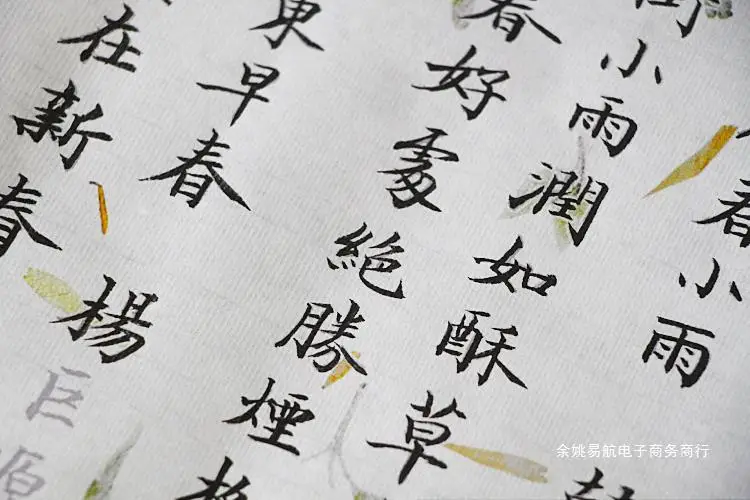 春小雨
小雨潤如酥草
春好處絕勝煙
東早春楊巨源
在新春
余姚易航电子商务商行